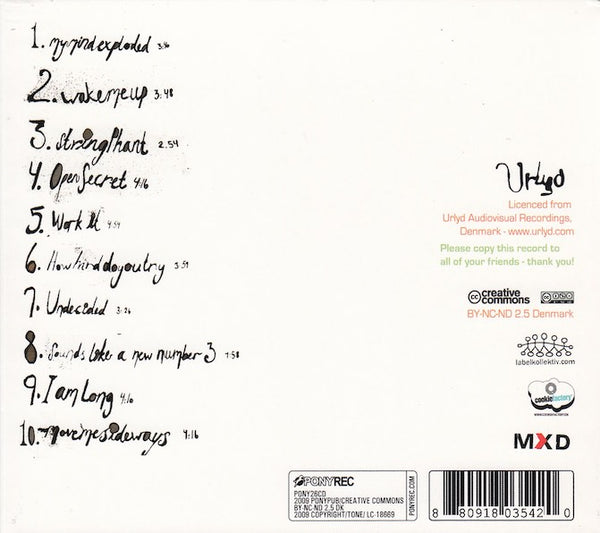 1. mymindexploded 3:36
2. wakemeup 3:48
3. Str8ngPhant 2.54
4. OpenSecret 4:16
5. Work It 4:59
6. Howkinddoyoutry 3:59
7. Undecided 3:26
8. Sounds like a new number 3 4:58
9. I am Long 4:10
10. Movemesideways 4:16
Urlyd
Licenced from
Urlyd Audiovisual Recordings,
Denmark - www.urlyd.com
Please copy this record to
all of your friends - thank you!
cc creative commons
BY-NC-ND 2.5 Denmark
labelkollektiv.com
cookiefactory
MXD
PONYREC
PONY26CD
2009 PONYPUB/CREATIVE COMMONS
BY-NC-ND 2.5 DK
2009 COPYRIGHT/TONE/ LC-18669
PONYREC.COM
8 80918 03542 0